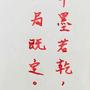 墨若乾,
局既定。